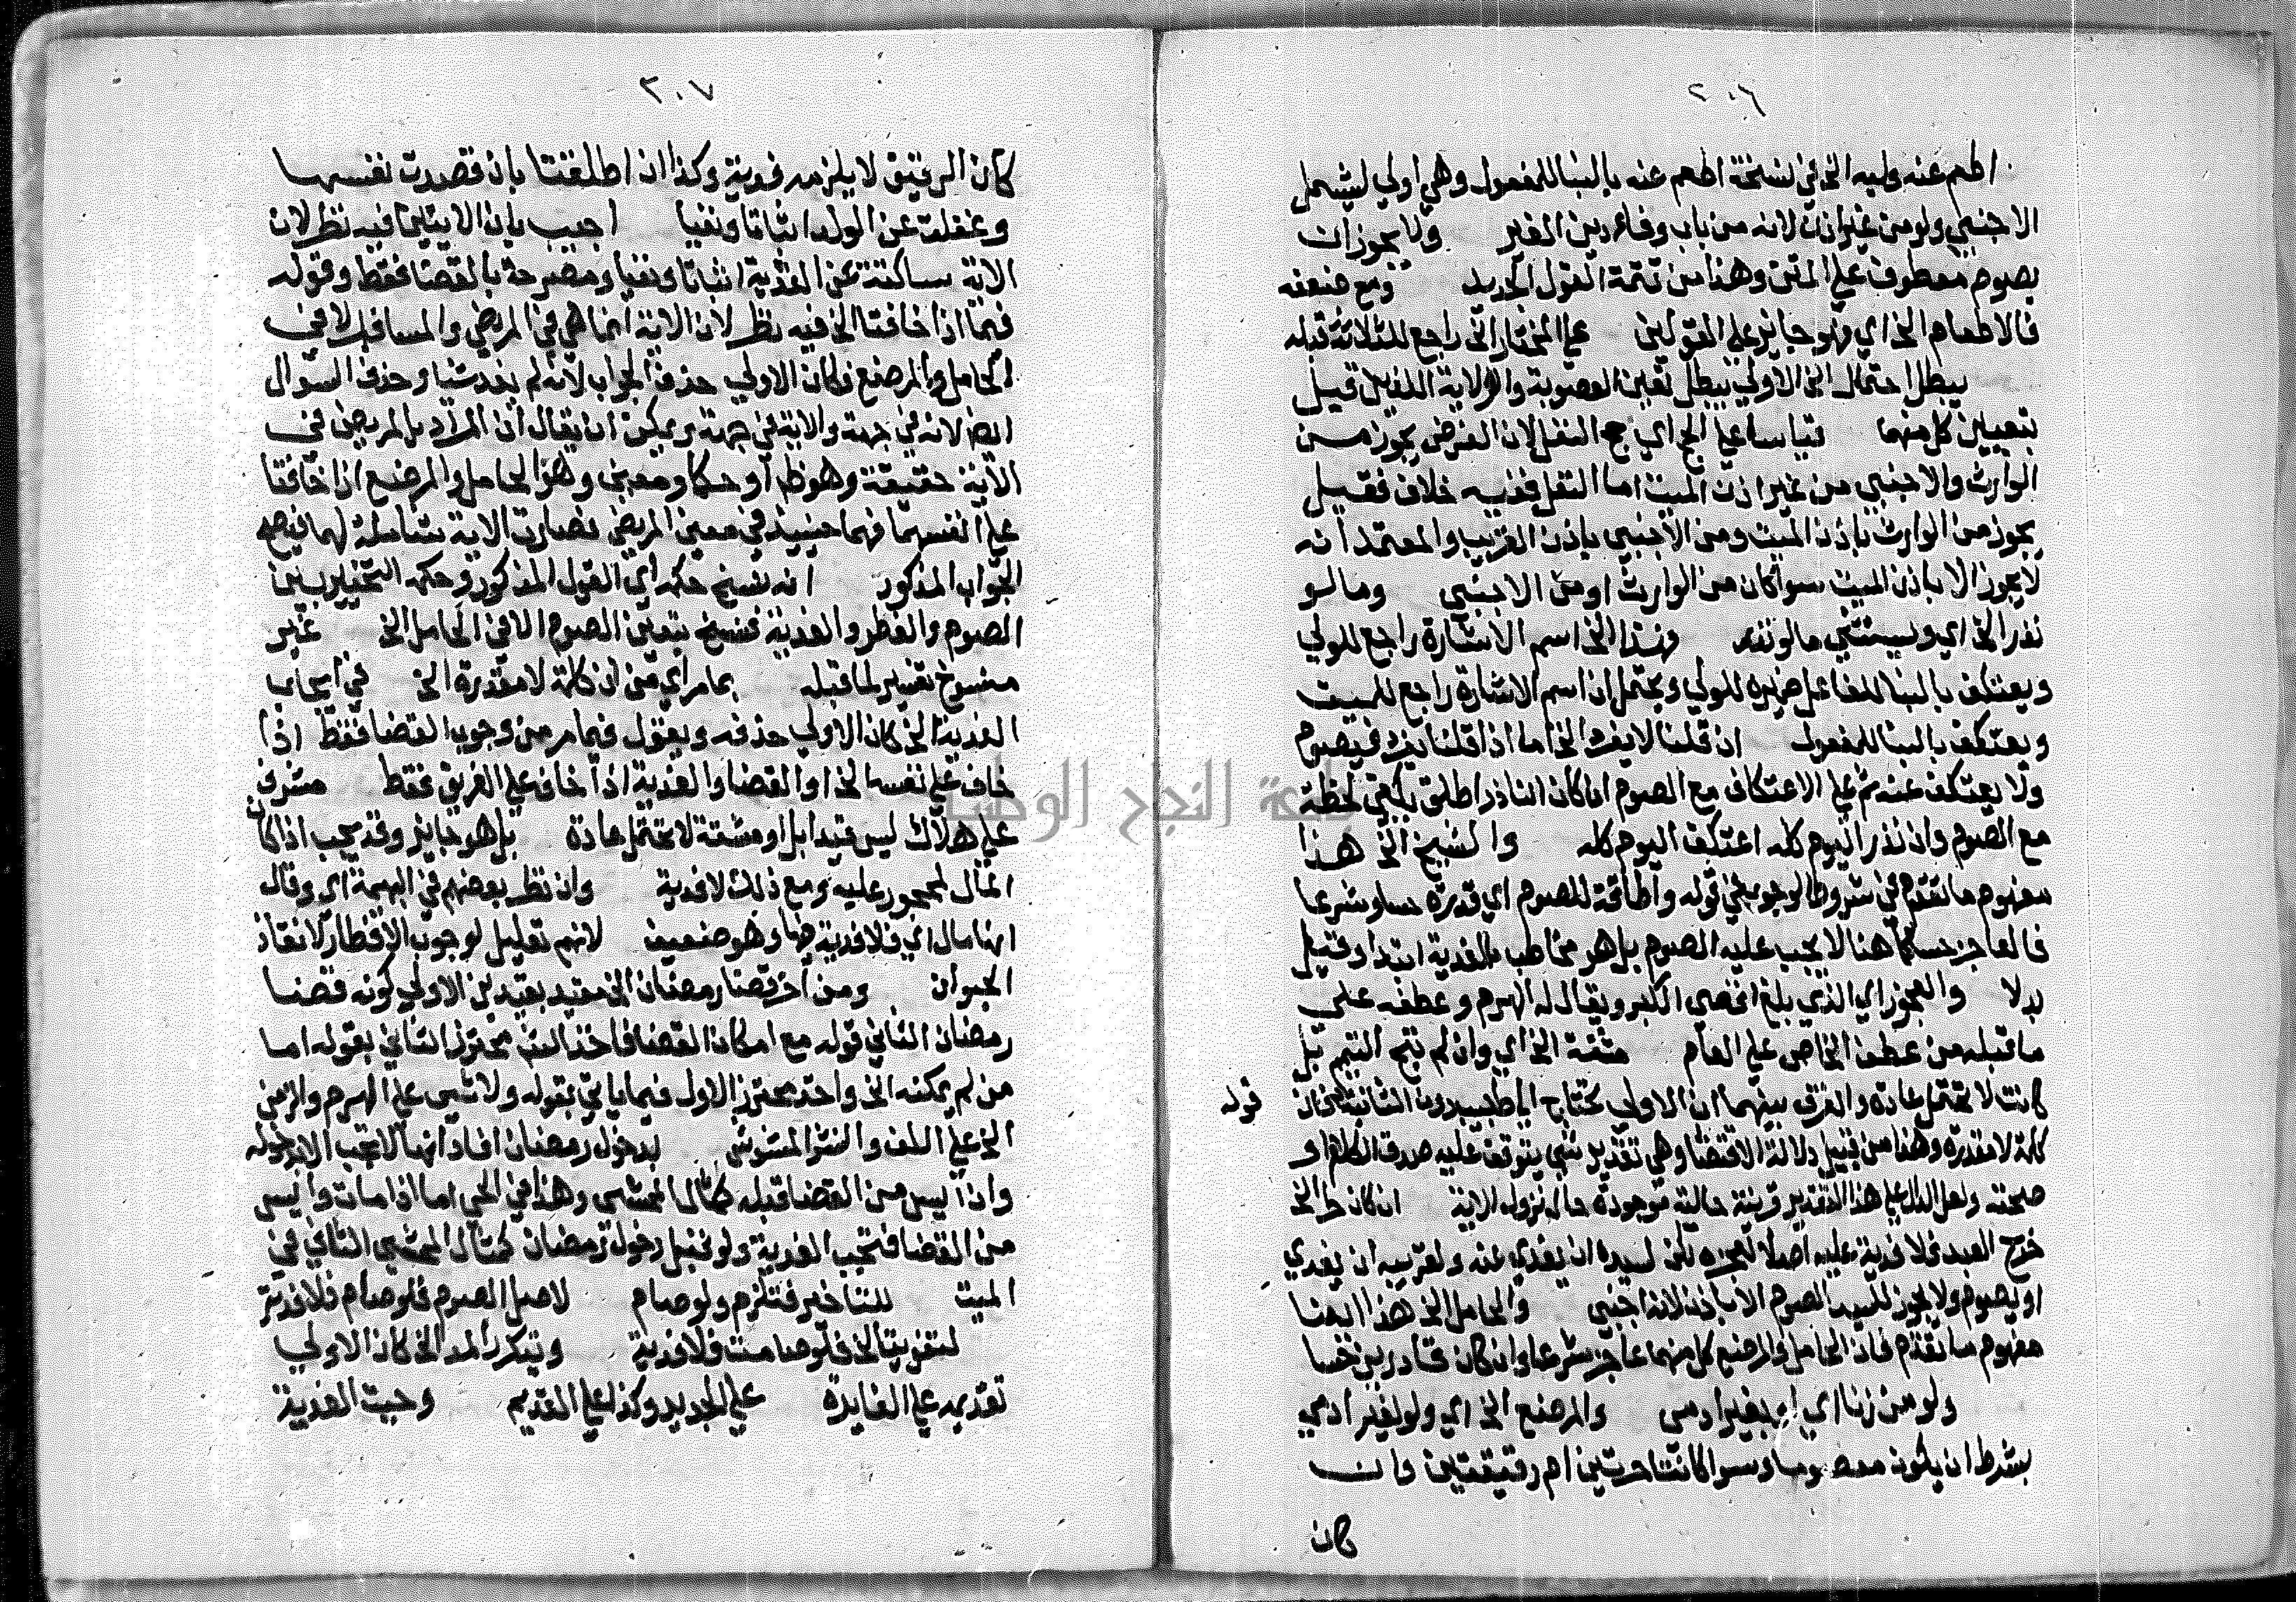 ٢٠٦
اطعم عنه وليه الخ في نسخة اطعم عنه بالبنا للمفعول وهي اولي ليشمل
الاجنبي ولو من غير اذن لانه من باب وفاء دين الغير ولا يجوز ان
يصوم معطوف علي المتن وهذا من تتمة القول الجديد ومع ضعفه
فالاطعام الخ اي وهو جايز علي القولين علي المختار الخ راجع للثلاثة قبله
يبطل احتمال الخ الاولي يبطل تعين العصوبة والولاية اللتين قيل
بتعيين كل منهما قياسا علي الحج اي حج النفل لان الفرض يجوز من
الوارث والاجنبي من غير اذن الميت اما النفل ففيه خلاف فقيل
يجوز من الوارث باذن الميت ومن الاجنبي باذن القريب والمعتمد انه
لا يجوز الا باذن الميت سوا كان من الوارث او من الاجنبي وما لو
نذر الخ اي ويستثني ما لو نذر فهذا الخ اسم الاشارة راجع للولي
ويعتكف بالبنا للفاعل ضميره للولي ويحتمل ان اسم الاشارة راجع للميت
ويعتكف بالبنا للمفعول ان قلنا لا يفرد الخ اما اذا قلنا يفرد فيصوم
ولا يعتكف عنه ثم علي الاعتكاف مع الصوم ان كان الناذر اطلق يكفي لحظة
مع الصوم وان نذر اليوم كله اعتكف اليوم كله والشيخ الخ هذا
مفهوم ما تقدم في شروط الوجوب في قوله واطاقة للصوم اي قدرة حسا وشرعا
فالعاجز حسا كما هنا لا يجب عليه الصوم بل هو مخاطب بالفدية ابتدا وقيل
بدلا والعجوز اي الذي بلغ اقصي الكبر ويقال له الهرم وعطفه علي
ما قبله من عطف الخاص علي العام مشقة الخ اي وان لم تبح التيمم بل
كانت لا تحتمل عادة والفرق بينهما ان الاولي يحتاج الي طبيب دون الثانية
قوله
كلمة لا مقدرة وهذا من قبيل دلالة الاقتضا وهي تقدير شي يتوقف عليه صدق الكلام او
صحته ولعل الدال علي هذا التقدير قرينة حالية موجودة حال نزول الاية ان كان حرا الخ
خرج العبد فلا فدية عليه اصلا لعجزه لكن لسيده ان يفدي عنه ولقريبه ان يفدي
او يصوم ولا يجوز للسيد الصوم الا باذن لانه اجنبي والحامل الخ هذا ايضا
مفهوم ما تقدم فان الحامل والمرضع كل منهما عاجز شرعا وان كان قادرين حسا
ولو من زنا اي او بغير ادمي والمرضع الخ اي ولو لغير ادمي
بشرط ان يكون معصوما وسوا كانتا حرتين ام رقيقتين وان
كان
٢٠٧
كان الرقيق لا يلزمه فدية وكذا ان اطلقتا بان قصدت نفسها
وغفلت عن الولد اثباتا ونفيا اجيب بان الاية الخ فيه نظر لان
الاية ساكتة عن الفدية اثباتا ونفيا ومصرحة بالقضا فقط وقوله
فيما اذا خافتا الخ فيه نظر لان الاية انما هي في المريض والمسافر لا في
الحامل والمرضع فكان الاولي حذف الجواب لانه لم يفد شيا وحذف السوال
ايضا لانه في جهة والاية في جهة ويمكن ان يقال ان المراد بالمريض في
الاية حقيقة وهو ظاهر او حكما ومعني وهو الحامل والمرضع اذا خافتا
علي انفسهما فهما حينيذ في معني المريض فصارت الاية شاملة لهما فيصح
الجواب المذكور انه نسخ حكمه اي القول المذكور وحكمه التخيير بين
الصوم والفطر والفدية فنسخ بتعين الصوم الا في الحامل الخ غير
منسوخ تفسير لما قبله بما مر اي من ان كلمة لا مقدرة الخ في ايجاب
الفدية الخ كان الاولي حذفه ويقول فيما مر من وجوب القضا فقط اذا
خاف علي نفسه الخ او القضا والفدية اذا خاف علي الغريق فقط مشرف
علي هلاك ليس قيدا بل او مشقة لا تحتمل عادة بل هو جايز وقد يجب اذا كان
المال لمحجور عليه ومع ذلك لا فدية وان نظر بعضهم في البهيمة اي وقال
انها مال اي فلا فدية فيها وهو ضعيف لانهم تعليل لوجوب الافطار لانقاذ
الحيوان ومن اخر قضا رمضان الخ مقيد بقيدين الاولي كونه قضا
رمضان الثاني قوله مع امكان القضا فاخذ الشارح محترز الثاني بقوله اما
من لم يمكنه الخ واخذ محترز الاول فيما ياتي بقوله ولا شي علي الهرم والزمن
الخ علي اللف والنشر المشوش بدخول رمضان افاد انها لا تجب الا بدخوله
وان ايس من القضا قبله كما قال المحشي وهذا في الحي اما اذا مات وايس
من القضا فتجب الفدية ولو قبل دخول رمضان كما قال المحشي الثاني في
الميت للتاخير فتلزم ولو صام لاصل الصوم فلو صام فلا فدية
لتفويتها الخ فلو صامت فلا فدية ويتكرر المد الخ كان الاولي
تقديمه علي الفايدة علي الجديد وكذا علي القديم وجبت الفدية
جامعة النجاح الوطنية